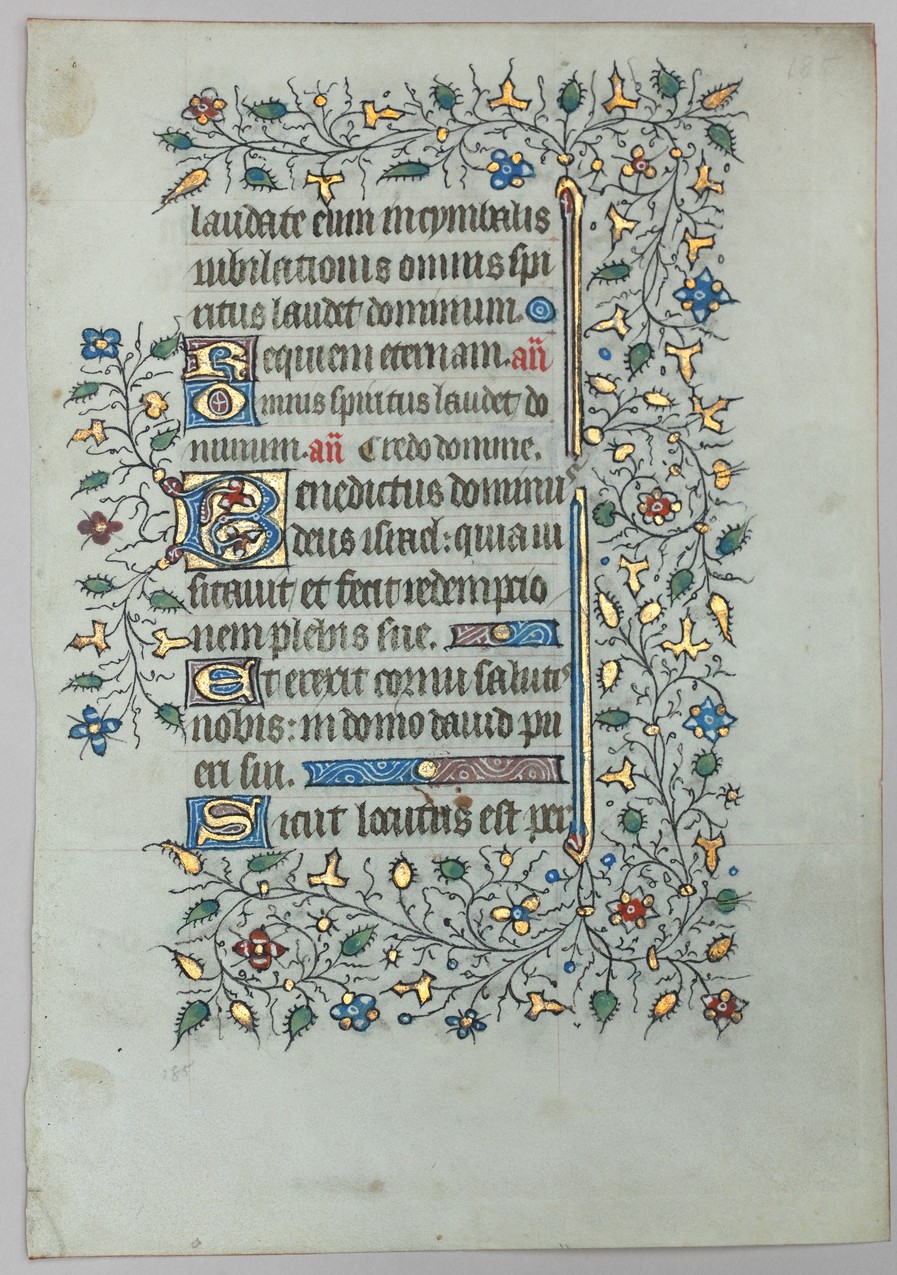 185
laudate eum in cymbalis
iubilationis omnis spi
ritus laudet dominum.
Requiem eternam. an̄
Omnis spiritus laudet do
minum. an̄ Credo domine.
Benedictus dominus
deus israel: quia ui
sitauit et fecit redemptio
nem plebis sue.
Et erexit cornu salutis
nobis: in domo dauid pu
eri sui.
Sicut locutus est per
185